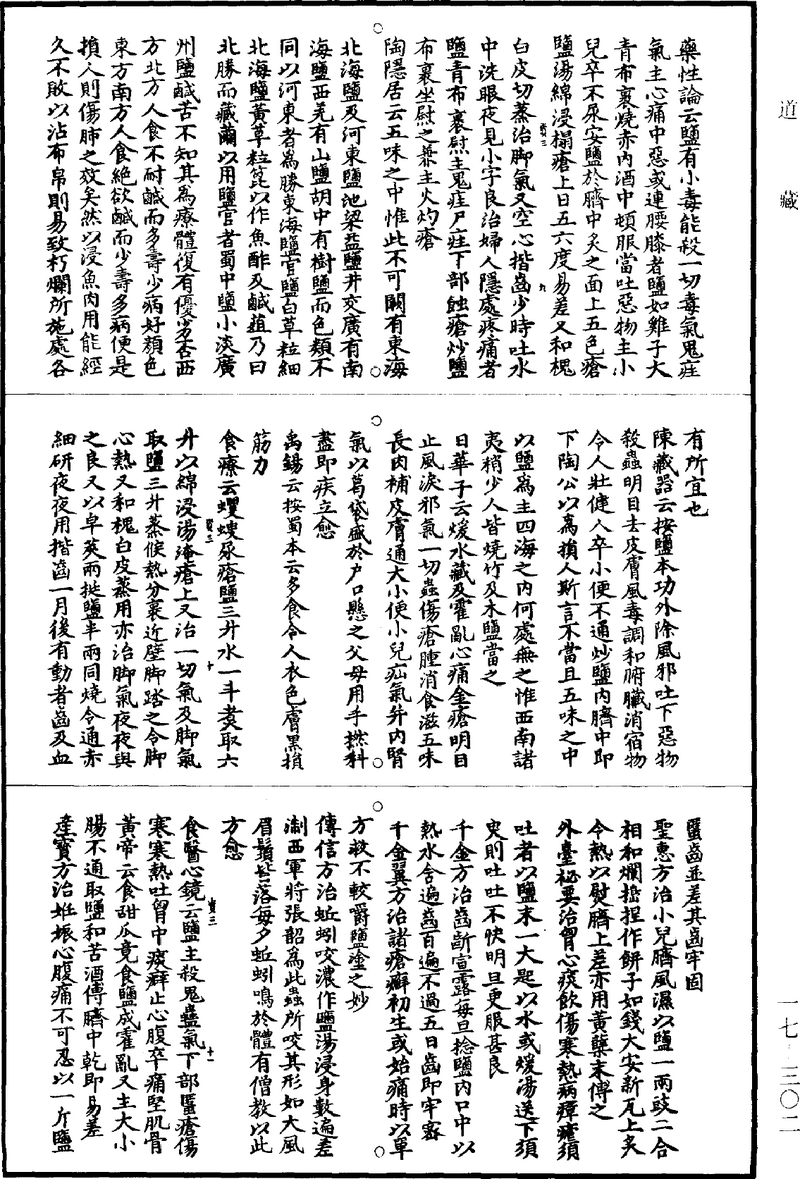 道藏
藥性論云鹽有小毒能殺一切毒氣鬼疰
氣主心痛中惡或連腰膝者鹽如雞子大
青布裹燒赤內酒中頓服當吐惡物主小
兒卒不尿安鹽於臍中灸之面上五色瘡
鹽湯綿浸搨瘡上日五六度易差又和槐
白皮切蒸治脚氣又空心揩齒少時吐水
中洗眼夜見小字良治婦人隱處疼痛者
鹽青布裹熨主鬼疰尸疰下部蝕瘡炒鹽
布裹坐熨之兼主火灼瘡
陶隱居云五味之中惟此不可闕有東海
北海鹽及河東鹽池梁益鹽井交廣有南
海鹽西羌有山鹽胡中有樹鹽而色類不
同以河東者為勝東海鹽官鹽白草粒細
北海鹽黃草粒麄以作魚鮓及鹹葅乃曰
北勝而藏繭必用鹽官者蜀中鹽小淡廣
州鹽鹹苦不知其為療體復有優劣否西
方北方人食不耐鹹而多壽少病好顏色
東方南方人食絕欲鹹而少壽多病便是
損人則傷肺之效矣然以浸魚肉用能經
久不敗以沾布帛則易致朽爛所施處各
有所宜也
陳藏器云按鹽本功外除風邪吐下惡物
殺蟲明目去皮膚風毒調和腑臟消宿物
令人壯健人卒小便不通炒鹽內臍中即
下陶公以為損人斯言不當且五味之中
以鹽為主四海之內何處無之惟西南諸
夷稍少人皆燒竹及木鹽當之
日華子云煖水藏及霍亂心痛金瘡明目
止風淚邪氣一切蟲傷瘡腫消食滋五味
長肉補皮膚通大小便小兒疝氣并內腎
氣以葛袋盛於戶口懸之父母用手撚料
盡即疾立愈
禹錫云按蜀本云多食令人衣色膚黑損
筋力
食療云蠼螋尿瘡鹽三升水一斗煑取六
升以綿浸湯淹瘡上又治一切氣及脚氣
取鹽三升蒸候熱分裹近壁脚踏之令脚
心熱又和槐白皮蒸用亦治脚氣夜夜與
之良又以皁莢兩挺鹽半兩同燒令通赤
細研夜夜用揩齒一月後有動者齒及血
䘌齒並差其齒牢固
聖惠方治小兒臍風濕以鹽一兩豉二合
相和爛搗捏作餅子如錢大安新瓦上炙
令熱以熨臍上差亦用黃蘗末傅之
外臺秘要治胷心痰飲傷寒熱病瘴瘧須
吐者以鹽末一大匙以水或煖湯送下須
臾則吐吐不快明旦更服甚良
千金方治齒齗宣露每旦捻鹽內口中以
熱水含遍齒百遍不過五日齒即牢密
千金翼方治諸瘡癬初生或始痛時以單
方救不較嚼鹽塗之妙
傳信方治蚯蚓咬濃作鹽湯浸身數遍差
淛西軍將張韶為此蟲所咬其形如大風
眉鬚皆落每夕蚯蚓鳴於體有僧教以此
方愈
食醫心鏡云鹽主殺鬼蠱氣下部䘌瘡傷
寒寒熱吐胷中痰癖止心腹卒痛堅肌骨
黃帝云食甜瓜竟食鹽成霍亂又主大小
腸不通取鹽和苦酒傅臍中乾即易差
產寶方治姙娠心腹痛不可忍以一斤鹽
一七·三〇二